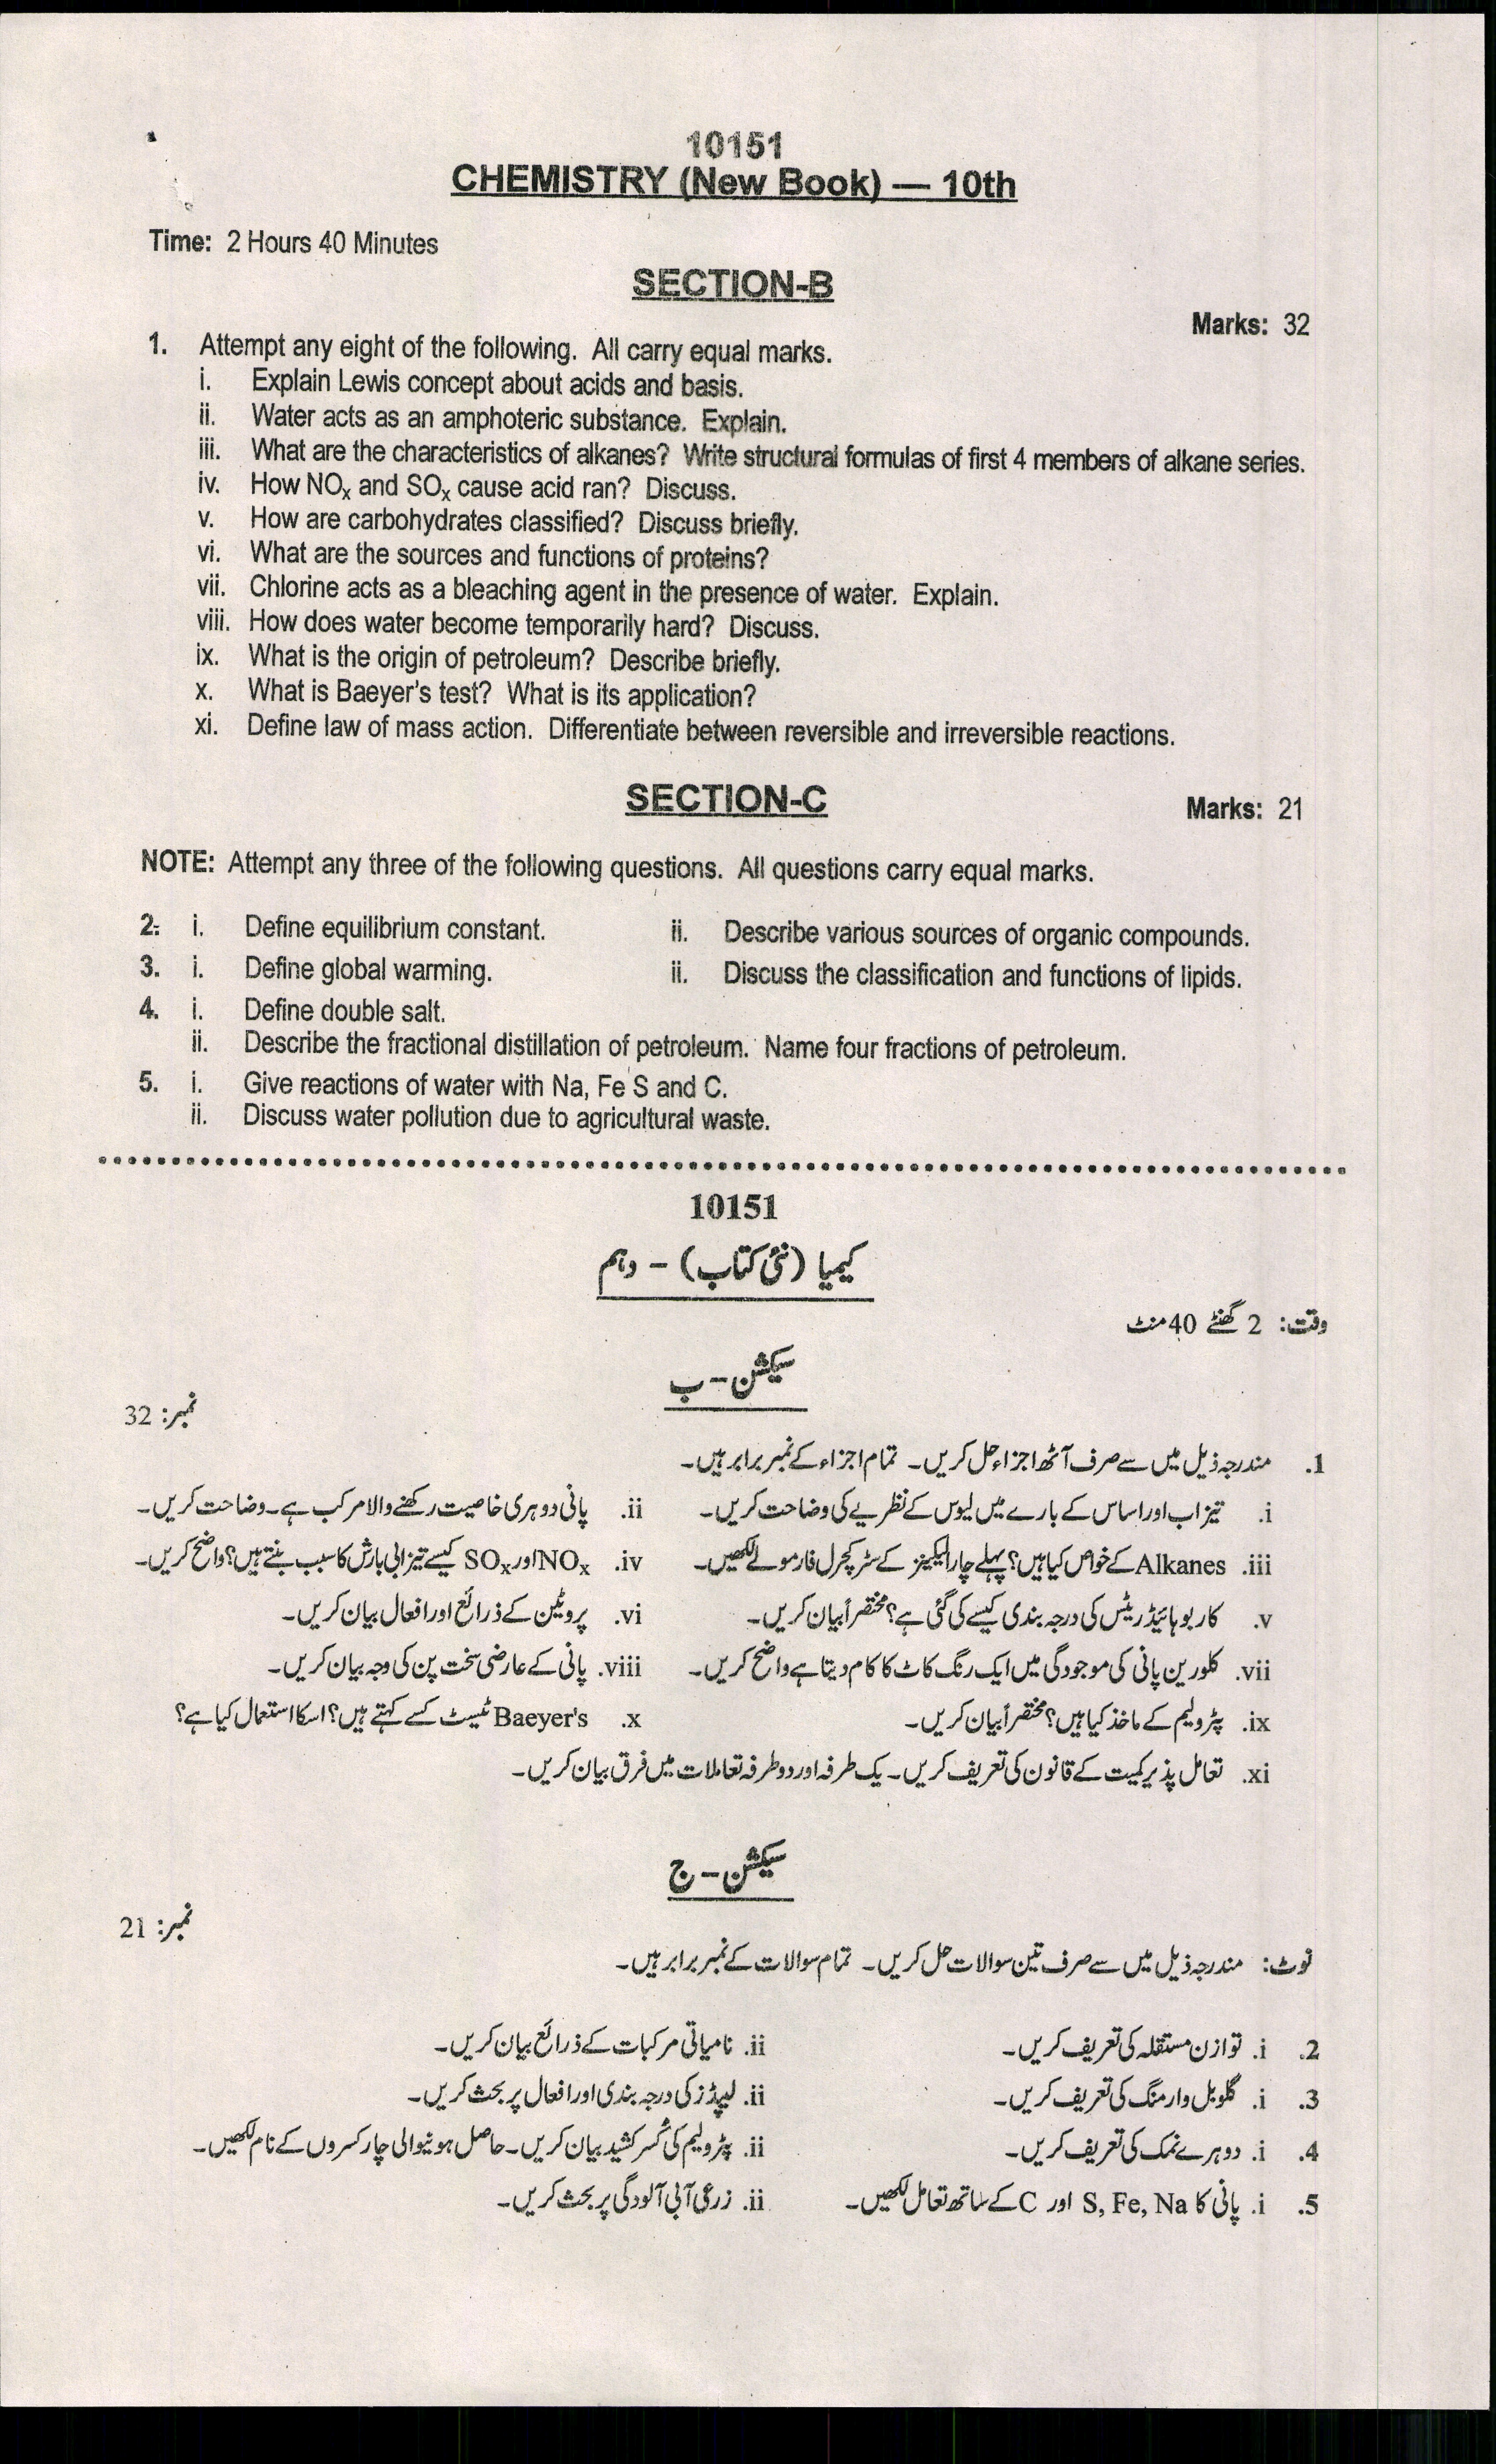 10151
CHEMISTRY (New Book) — 10th
Time: 2 Hours 40 Minutes
SECTION-B
Marks: 32
1. Attempt any eight of the following. All carry equal marks.
i. Explain Lewis concept about acids and basis.
ii. Water acts as an amphoteric substance. Explain.
iii. What are the characteristics of alkanes? Write structural formulas of first 4 members of alkane series.
iv. How NOx and SOx cause acid ran? Discuss.
v. How are carbohydrates classified? Discuss briefly.
vi. What are the sources and functions of proteins?
vii. Chlorine acts as a bleaching agent in the presence of water. Explain.
viii. How does water become temporarily hard? Discuss.
ix. What is the origin of petroleum? Describe briefly.
x. What is Baeyer's test? What is its application?
xi. Define law of mass action. Differentiate between reversible and irreversible reactions.
SECTION-C
Marks: 21
NOTE: Attempt any three of the following questions. All questions carry equal marks.
2. i. Define equilibrium constant. ii. Describe various sources of organic compounds.
3. i. Define global warming. ii. Discuss the classification and functions of lipids.
4. i. Define double salt.
ii. Describe the fractional distillation of petroleum. Name four fractions of petroleum.
5. i. Give reactions of water with Na, Fe S and C.
ii. Discuss water pollution due to agricultural waste.
10151
کیمیا (نئی کتاب) – دہم
وقت: 2 گھنٹے 40 منٹ
سیکشن – ب
نمبر: 32
1. مندرجہ ذیل میں سے صرف آٹھ اجزاء حل کریں۔ تمام اجزاء کے نمبر برابر ہیں۔
i. تیزاب اور اساس کے بارے میں لیوس کے نظریے کی وضاحت کریں۔ ii. پانی دوہری خاصیت رکھنے والا مرکب ہے۔ وضاحت کریں۔
iii. Alkanes کے خواص کیا ہیں؟ پہلے چار الیکینز کے سٹرکچرل فارمولے لکھیں۔ iv. NOx اور SOx کیسے تیزابی بارش کا سبب بنتے ہیں؟ واضح کریں۔
v. کاربوہائیڈریٹس کی درجہ بندی کیسے کی گئی ہے؟ مختصراً بیان کریں۔ vi. پروٹین کے ذرائع اور افعال بیان کریں۔
vii. کلورین پانی کی موجودگی میں ایک رنگ کاٹ کا کام دیتا ہے واضح کریں۔ viii. پانی کے عارضی سخت پن کی وجہ بیان کریں۔
ix. پٹرولیم کے ماخذ کیا ہیں؟ مختصراً بیان کریں۔ x. Baeyer's ٹیسٹ کسے کہتے ہیں؟ اسکا استعمال کیا ہے؟
xi. تعامل پذیر کمیت کے قانون کی تعریف کریں۔ یک طرفہ اور دو طرفہ تعاملات میں فرق بیان کریں۔
سیکشن – ج
نمبر: 21
نوٹ: مندرجہ ذیل میں سے صرف تین سوالات حل کریں۔ تمام سوالات کے نمبر برابر ہیں۔
2. i. توازن مستقلہ کی تعریف کریں۔ ii. نامیاتی مرکبات کے ذرائع بیان کریں۔
3. i. گلوبل وارمنگ کی تعریف کریں۔ ii. لیپڈز کی درجہ بندی اور افعال پر بحث کریں۔
4. i. دوہرے نمک کی تعریف کریں۔ ii. پٹرولیم کی کسر کشید بیان کریں۔ حاصل ہونیوالی چار کسروں کے نام لکھیں۔
5. i. پانی کا S, Fe, Na اور C کے ساتھ تعامل لکھیں۔ ii. زرعی آبی آلودگی پر بحث کریں۔